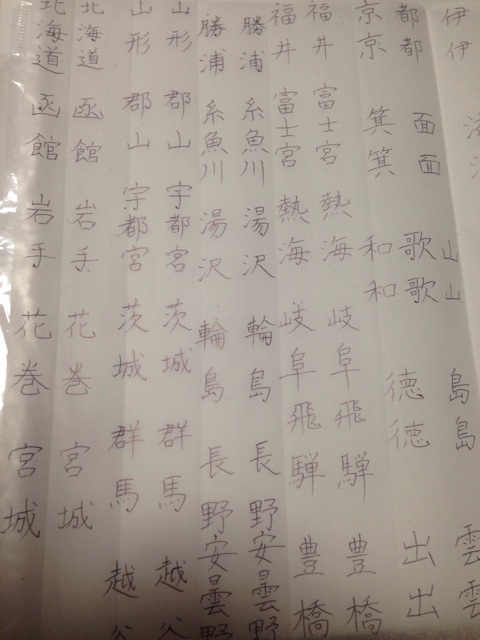 北海道 函館 岩手 花巻 宮城
北海道 函館 岩手 花巻 宮城
山形 郡山 宇都宮 茨城 群馬 越谷
山形 郡山 宇都宮 茨城 群馬 越谷
勝浦 糸魚川 湯沢 輪島 長野 安曇野
勝浦 糸魚川 湯沢 輪島 長野 安曇野
福井 富士宮 熱海 岐阜 飛騨 豊橋
福井 富士宮 熱海 岐阜 飛騨 豊橋
京都 伊
京都 伊
箕面
箕面
和歌山
和歌山
徳島
徳島
出雲
出雲